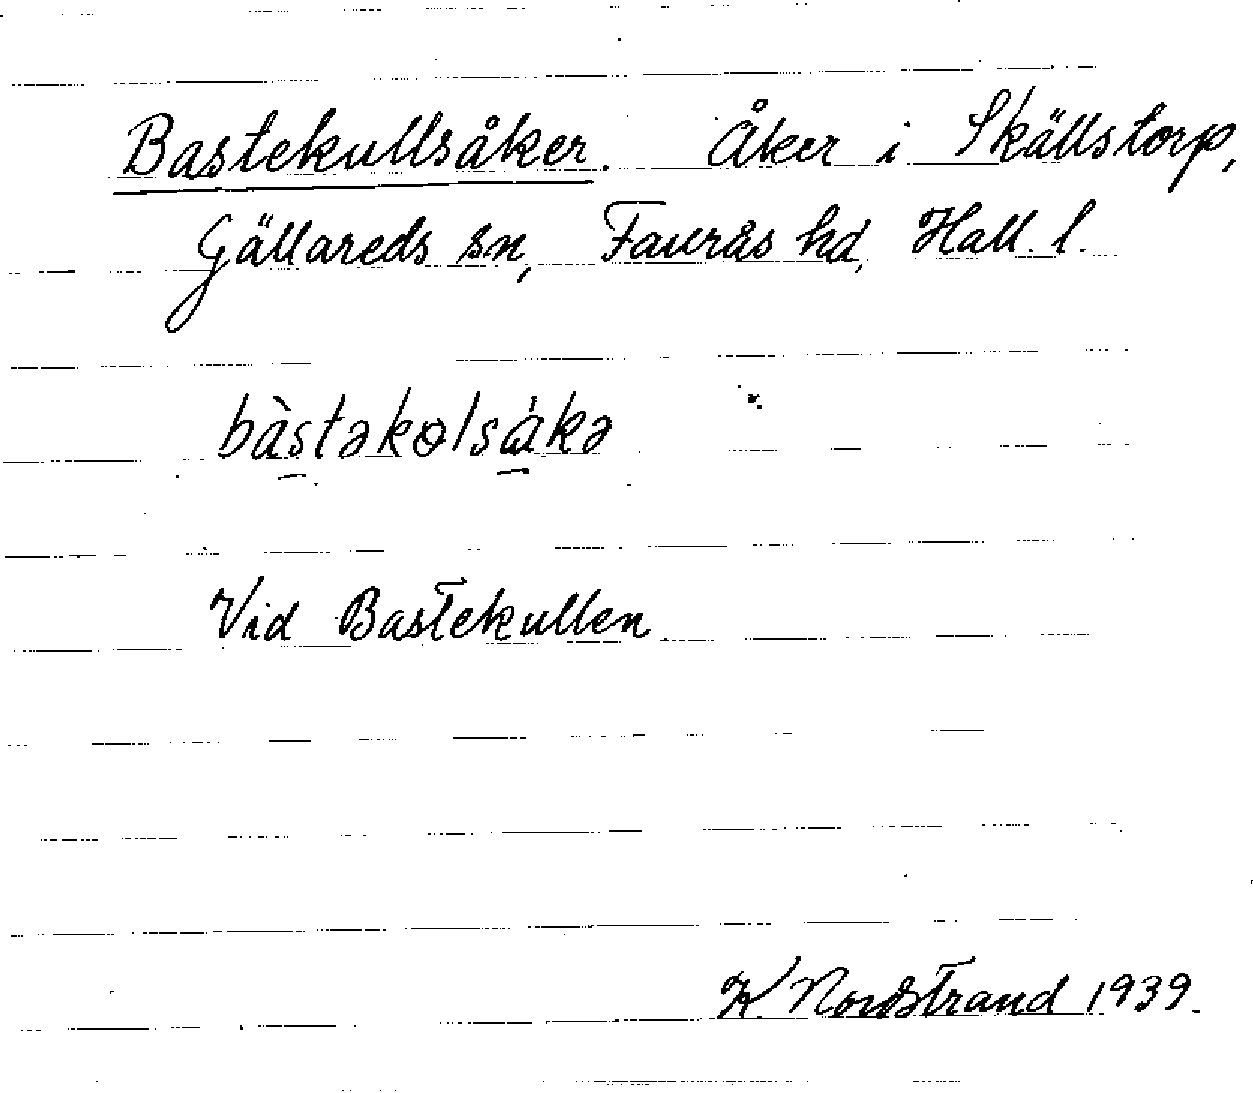 Bastekullsåker. Åker i Skällstorp,
Gällareds sn, Faurås hd, Hall. l.
bàstəkɵlsåkə
Vid Bastekullen
K. Nordstrand 1939.